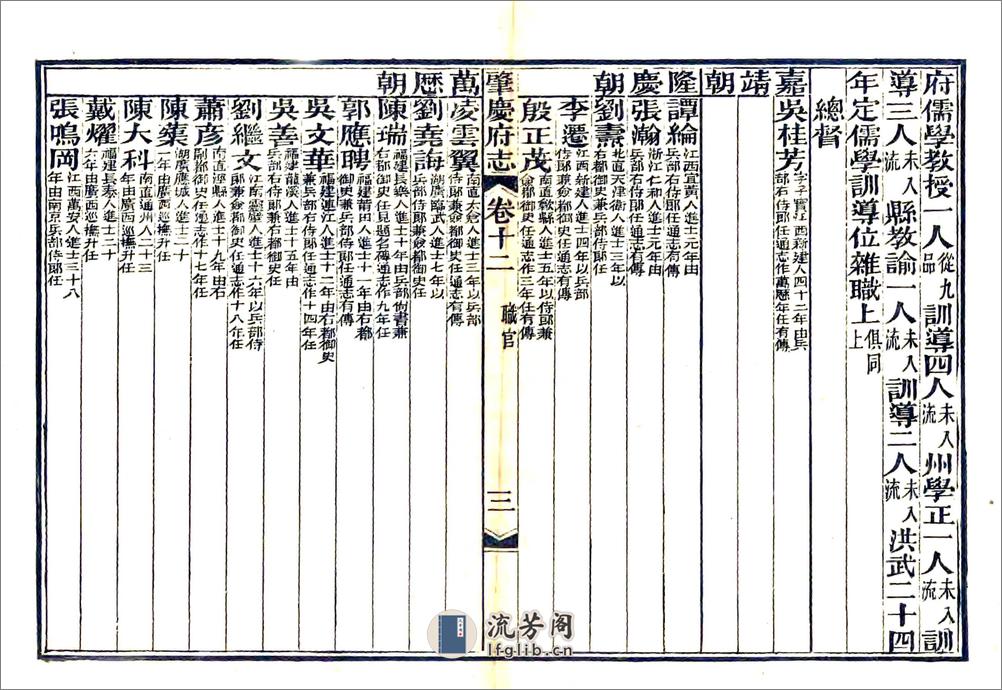 府儒學教授一人從九品訓導四人未入流州學正一人未入流訓
導三人未入流縣教諭一人未入流訓導二人未入流洪武二十四
年定儒學訓導位雜職上俱同上
總督
嘉靖朝
吳桂芳字子實江西新建人四十二年由兵部右侍郎任通志作萬歷年任有傳
隆慶朝
譚綸江西宜黃人進士元年由兵部右侍郎任通志有傳
張瀚浙江仁和人進士元年由兵部右侍郎任通志有傳
劉燾北直天津衛人進士三年以右都御史兼兵部侍郎任
李遷江西新建人進士四年以兵部侍郎兼僉都御史任通志有傳
殷正茂南直歙縣人進士五年以侍郎兼僉都御史任通志作三年任有傳
肇慶府志 卷十二 職官 三
萬歷朝
凌雲翼南直太倉人進士三年以兵部侍郎兼僉都御史任通志有傳
劉堯誨湖廣臨武人進士七年以兵部侍郎兼僉都御史任
陳瑞福建長樂人進士十年由兵部尚書兼右都御史任見題名碑通志作九年任
郭應聘福建莆田人進士十一年由右都御史兼兵部侍郎任通志有傳
吳文華福建連江人進士十二年由右都御史兼兵部右侍郎任通志作十四年任
吳善福建龍溪人進士十五年由兵部右侍郎兼右都御史任
劉繼文江南靈壁人進士十六年以兵部侍郎兼僉都御史任通志作十八年任
蕭彥南直涇縣人進士十九年由右副都御史任通志作十七年任
陳蕖湖廣應城人進士二十一年由廣西巡撫升任
陳大科南直通州人二十三年由廣西巡撫升任
戴燿福建長泰人進士二十六年由廣西巡撫升任
張鳴岡江西萬安人進士三十八年由南京兵部侍郎任
流芳阁
lfglib.cn